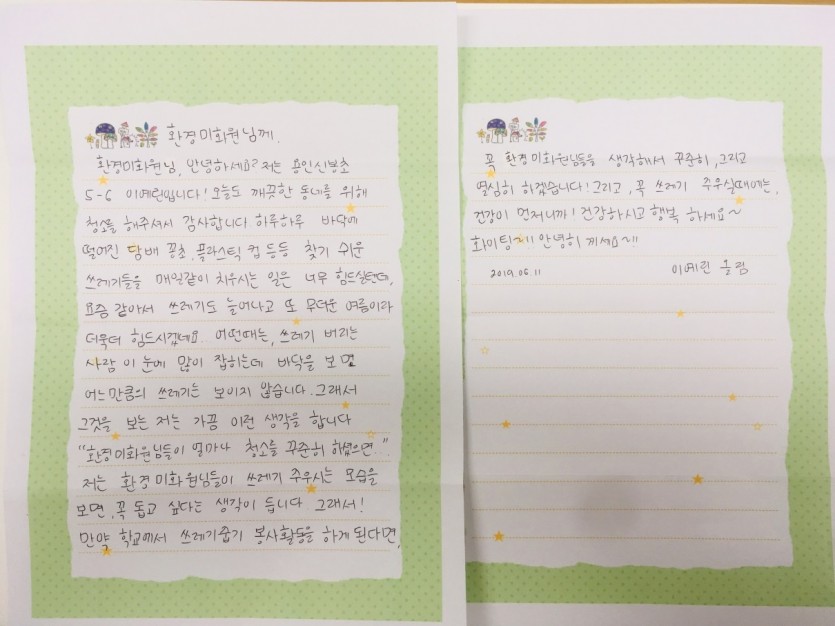 환경미화원님께.
환경미화원님, 안녕하세요? 저는 용인신봉초
5-6 이예린입니다! 오늘도 깨끗한 동네를 위해
청소를 해주셔서 감사합니다 하루하루 바닥에
떨어진 담배 꽁초, 플라스틱 컵 등등 찾기 쉬운
쓰레기들을 매일같이 치우시는 일은 너무 힘드실텐데,
요즘 같아서 쓰레기도 늘어나고 또 무더운 여름이라
더욱더 힘드시겠네요. 어떤때는, 쓰레기 버리는
사람 이 눈에 많이 잡히는데 바닥을 보면
어느만큼의 쓰레기는 보이지 않습니다. 그래서
그것을 보는 저는 가끔 이런 생각을 합니다
"환경미화원님들이 얼마나 청소를 꾸준히 하셨으면..".
저는 환경미화원님들이 쓰레기 주우시는 모습을
보면, 꼭 돕고 싶다는 생각이 듭니다. 그래서!
만약 학교에서 쓰레기줍기 봉사활동을 하게 된다면,
꼭 환경미화원님들을 생각해서 꾸준히, 그리고
열심히 하겠습니다! 그리고, 꼭 쓰레기 주우실때에는,
건강이 먼저니까! 건강하시고 행복 하세요~
화이팅~!! 안녕히 계세요~!!
2019.06.11 이예린 올림